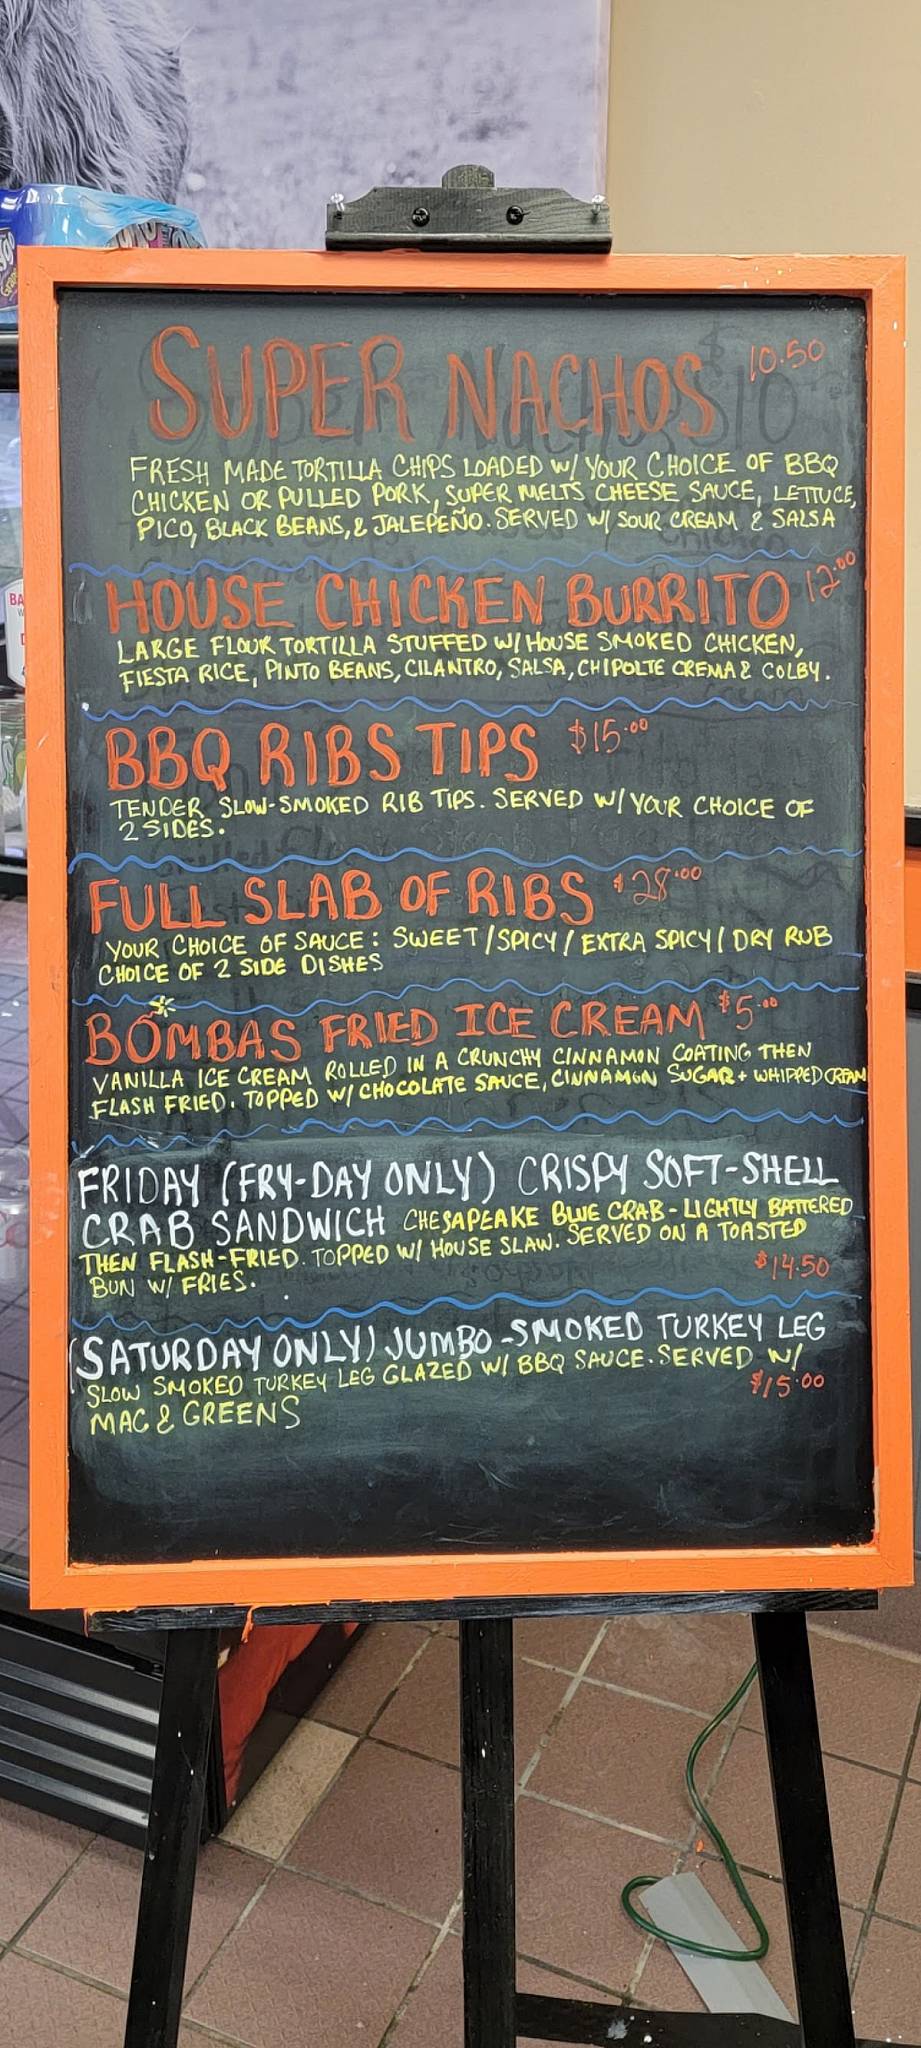 SUPER NACHOS 10.50
FRESH MADE TORTILLA CHIPS LOADED W/ YOUR CHOICE OF BBQ
CHICKEN OR PULLED PORK, SUPER MELTS CHEESE SAUCE, LETTUCE,
PICO, BLACK BEANS, & JALEPEÑO. SERVED W/ SOUR CREAM & SALSA
HOUSE CHICKEN BURRITO 12.00
LARGE FLOUR TORTILLA STUFFED W/ HOUSE SMOKED CHICKEN,
FIESTA RICE, PINTO BEANS, CILANTRO, SALSA, CHIPOLTE CREMA & COLBY.
BBQ RIBS TIPS $15.00
TENDER SLOW-SMOKED RIB TIPS. SERVED W/ YOUR CHOICE OF
2 SIDES.
FULL SLAB OF RIBS $28.00
YOUR CHOICE OF SAUCE: SWEET/SPICY/EXTRA SPICY/DRY RUB
CHOICE OF 2 SIDE DISHES
BOMBAS FRIED ICE CREAM $5.00
VANILLA ICE CREAM ROLLED IN A CRUNCHY CINNAMON COATING THEN
FLASH FRIED. TOPPED W/ CHOCOLATE SAUCE, CINNAMON SUGAR + WHIPPED CREAM
FRIDAY (FRY-DAY ONLY) CRISPY SOFT-SHELL
CRAB SANDWICH CHESAPEAKE BLUE CRAB - LIGHTLY BATTERED
THEN FLASH-FRIED. TOPPED W/ HOUSE SLAW. SERVED ON A TOASTED
BUN W/ FRIES. $14.50
(SATURDAY ONLY) JUMBO-SMOKED TURKEY LEG
SLOW SMOKED TURKEY LEG GLAZED W/ BBQ SAUCE. SERVED W/
MAC & GREENS $15.00